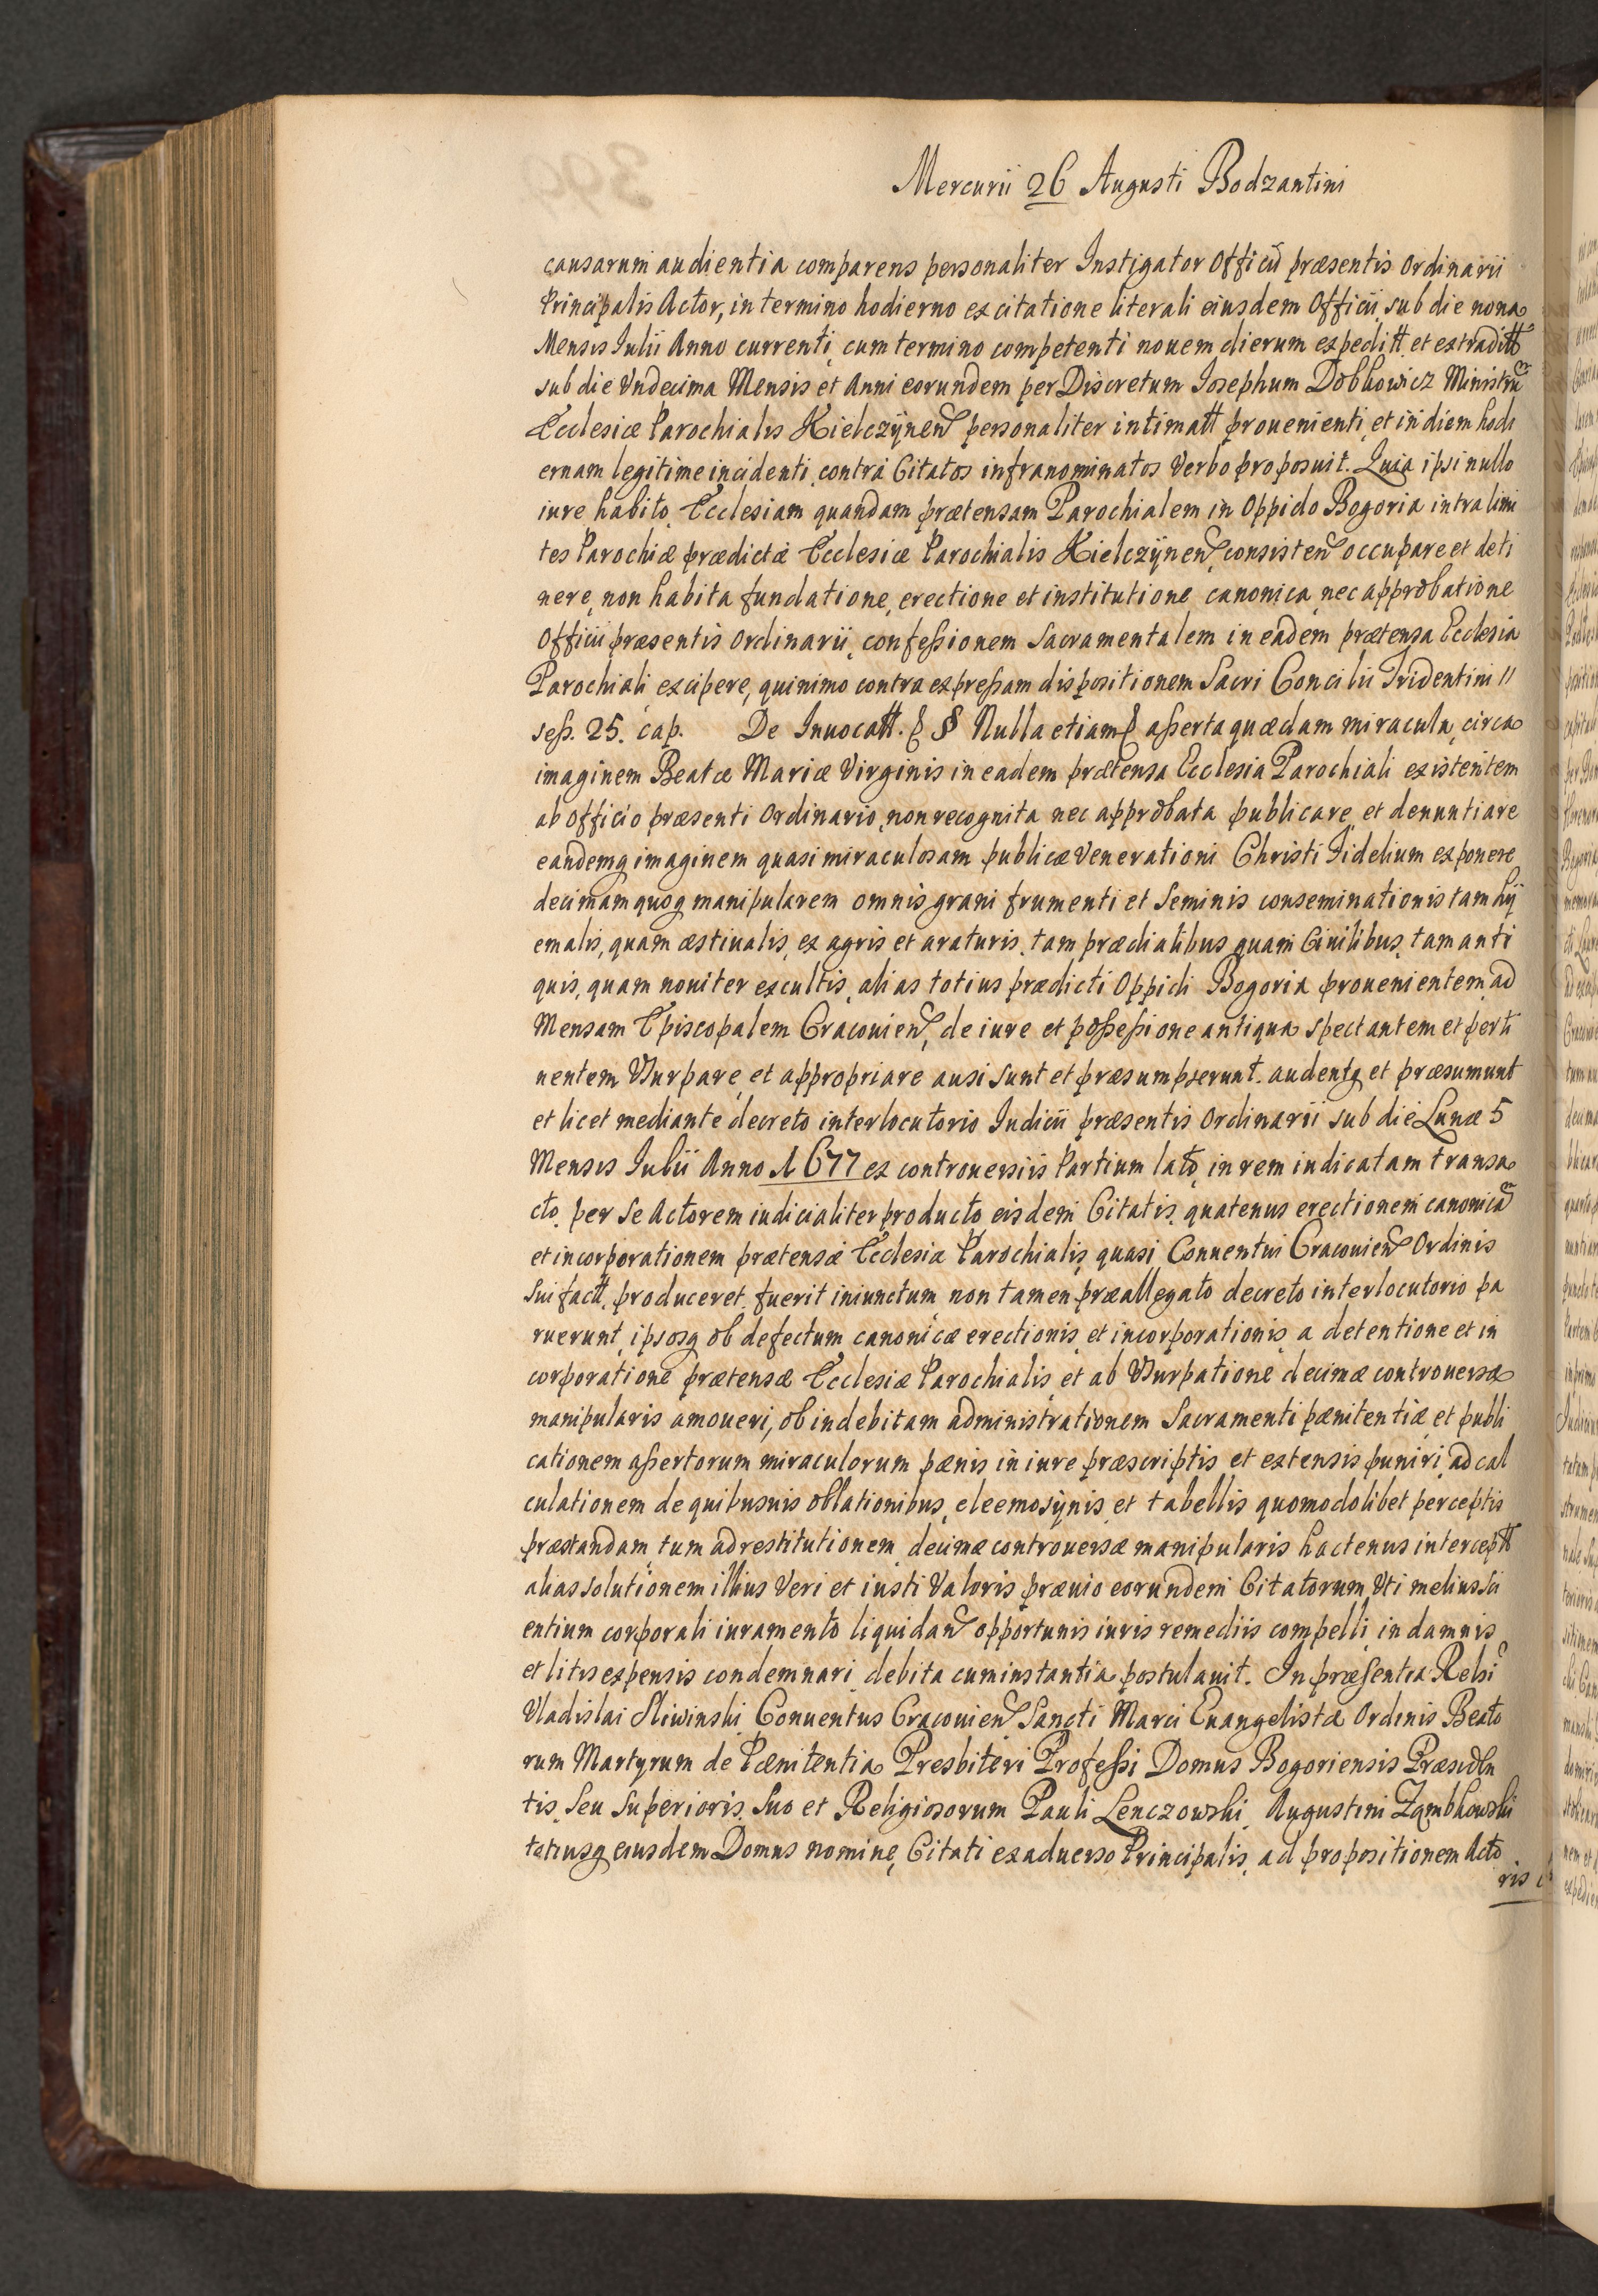 Mercurii 26 Augusti Bodzantini
causarum audientia comparens personaliter Instigator Officii præsentis Ordinarii
Principalis Actor, in termino hodierno ex citatione literali eiusdem Officii, sub die nona
Mensis Iulii Anno currenti, cum termino competenti nouem dierum expeditt. et extraditt
sub die Vndecima Mensis et Anni eorundem per Discretum Iosephum Dobkowicz Ministrũ
Ecclesiæ Parochialis Kielczÿnen̄ personaliter intimatt prouenienti, et in diem hodi
ernam legitime incidenti, contra Citatos infranominatos Verbo proposuit. Quia ipsi nullo
iure habito, Ecclesiam quandam prætensam Parochialem in Oppido Bogoria intra limi
tes Parochiæ prædictæ Ecclesiæ Parochialis Kielczÿnen̄, consisten̄ occupare et deti
nere, non habita fundatione, erectione et institutione canonica, nec approbatione
Officii præsentis Ordinarii, confeßionem Sacramentalem in eadem prætensa Ecclesia
Parochiali excipere, quinimo contra expreßam dispositionem Sacri Concilii Tridentini //
seß. 25. cap. De Inuocatt. § Nulla etiam aßerta quædam miracula, circa
imaginem Beatæ Mariæ Virginis in eadem prætensa Ecclesia Parochiali existentem
ab Officio præsenti Ordinario, non recognita nec approbata publicare, et denuntiare
eandemq imaginem quasi miraculosam publicæ Venerationi Christi Fidelium exponere
decimam quoq manipularem omnis grani frumenti et Seminis conseminationis tam hÿ
emalis, quam æstiualis, ex agris et araturis, tam prædialibus quam Ciuilibus, tam anti
quis, quam nouiter excultis, alias totius prædicti Oppidi Bogoria prouenientem, ad
Mensam Episcopalem Cracouien̄, de iure et poßeßione antiqua spectantem et perti
nentem Vsurpare, et appropriare ausi sunt et præsumpserunt. audentq et præsumunt
et licet mediante decreto interlocutorio Iudicii præsentis Ordinarii sub die Lunæ 5
Mensis Iulii Anno 1677 ex controuersiis Partium lato, in rem iudicatam transa
cto, per Se Actorem iudicialiter producto, eisdem Citatis, quatenus erectionem canonicã
et incorporationem prætensæ Ecclesiæ Parochialis, quasi Conuentui Cracouien̄ Ordinis
Sui factt. produceret, fuerit iniunctum non tamen præallegato decreto interlocutorio pa
ruerunt, ipsosq ob defectum canonicæ erectionis, et incorporationis, a detentione et in
corporatione prætensæ Ecclesiæ Parochialis, et ab Vsurpatione decimæ controuersæ
manipularis amoueri, ob indebitam administrationem Sacramenti pænitentiæ et publi
cationem aßertorum miraculorum pænis in iure præscriptis et extensis puniri, ad cal
culationem de quibusuis oblationibus, eleemosÿnis, et tabellis quomodolibet perceptis
præstandam, tum ad restitutionem decimæ controuersæ manipularis hactenus interceptt
alias solutionem illius Veri et iusti Valoris præuio eorundem Citatorum, Vti melius sci
entium corporali iuramento liquidan̄ opportunis iuris remediis compelli, in damnis
et litis expensis condemnari debita cum instantia postulauit. In præsentia Relsi
Vladislai Sliwinski, Conuentus Cracouien̄ Sancti Marci Euangelistæ Ordinis Beato
rum Martyrum de Pænitentia, Presbiteri Profeßi Domus Bogoriensis Præsiden
tis, Seu Superioris, Suo et Religiosorum Pauli Lenczowski, Augustini Zęmbkowski
totiusq eiusdem Domus nomine, Citati ex aduerso Principalis, ad propositionem Acto
ris